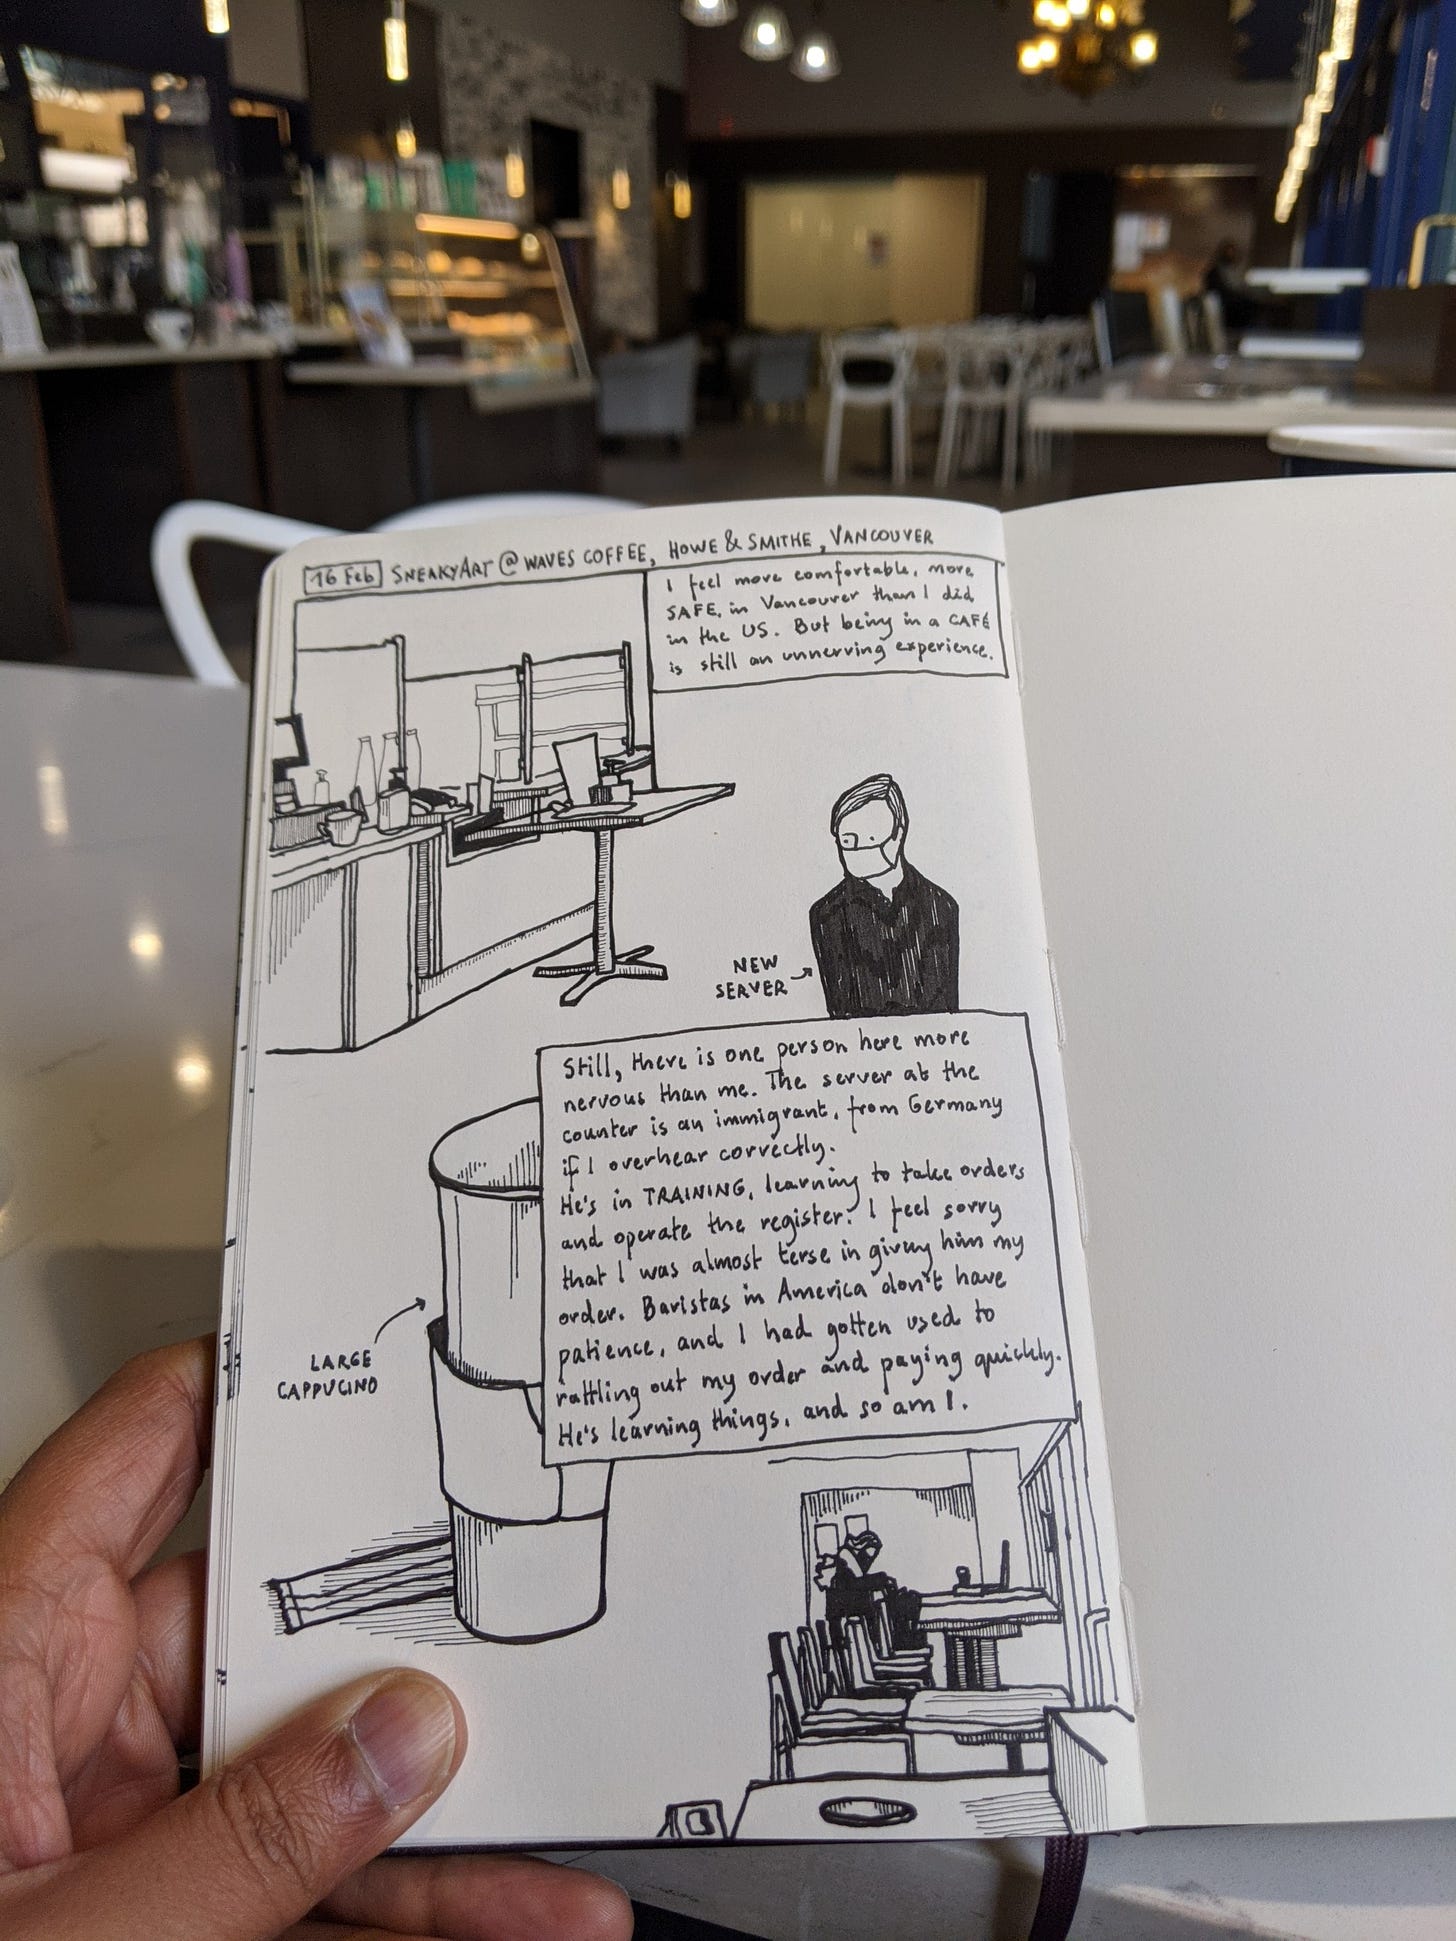 16 Feb SNEAKYART @ WAVES COFFEE, HOWE & SMITHE, VANCOUVER
I feel more comfortable, more
SAFE, in Vancouver than I did
in the US. But being in a CAFÉ
is still an unnerving experience.
NEW
SERVER
Still, there is one person here more
nervous than me. The server at the
counter is an immigrant, from Germany
if I overhear correctly.
He's in TRAINING, learning to take orders
and operate the register. I feel sorry
that I was almost terse in giving him my
order. Baristas in America don't have
patience, and I had gotten used to
rattling out my order and paying quickly.
He's learning things, and so am I.
LARGE
CAPPUCINO